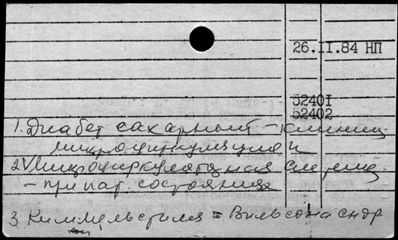 26.II.84 НП
52401
52402
1. Диабет сахарный - клиниц
микроциркуляция
2. Микроциркуляторная система
- при пат. состояниях
3. Киммельстиля = Вильсона сндр